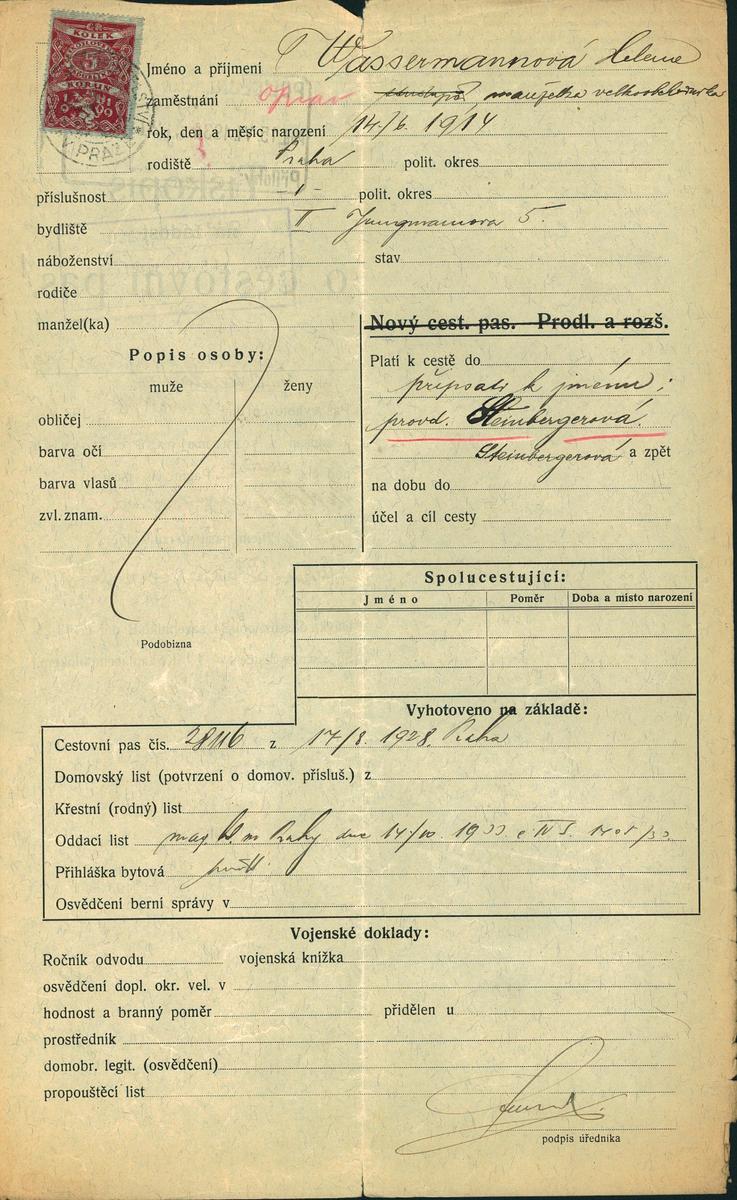 ČR
KOLEK
5
KORUN
Jméno a příjmení Wassermannová Helene
zaměstnání oprav manželka velkoobchodníka
rok, den a měsíc narození 14./6. 1914
rodiště Praha polit. okres
příslušnost -"- polit. okres
bydliště II Jungmannova 5.
náboženství stav
rodiče
manžel(ka)
Nový cest. pas. Prodl. a rozš.
Popis osoby:
Platí k cestě do
muže ženy
připsati k jménu:
obličej
provd. Steinbergerová.
barva očí
Steinbergerová a zpět
barva vlasů
na dobu do
zvl. znam.
účel a cíl cesty
Spolucestující:
Jméno Poměr Doba a místo narození
Podobizna
Vyhotoveno na základě:
Cestovní pas čís. z 17/8. 1928. Praha
Domovský list (potvrzení o domov. přísluš.) z
Křestní (rodný) list
Oddací list mag. hl. m. Prahy dne 14/10. 1933
Přihláška bytová
Osvědčení berní správy v
Vojenské doklady:
Ročník odvodu vojenská knížka
osvědčení dopl. okr. vel. v
hodnost a branný poměr přidělen u
prostředník
domobr. legit. (osvědčení)
propouštěcí list
podpis úředníka